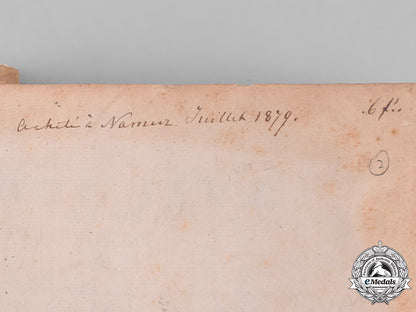 Acheté à Namur Juillet 1879. 6 f.
2
eMedals